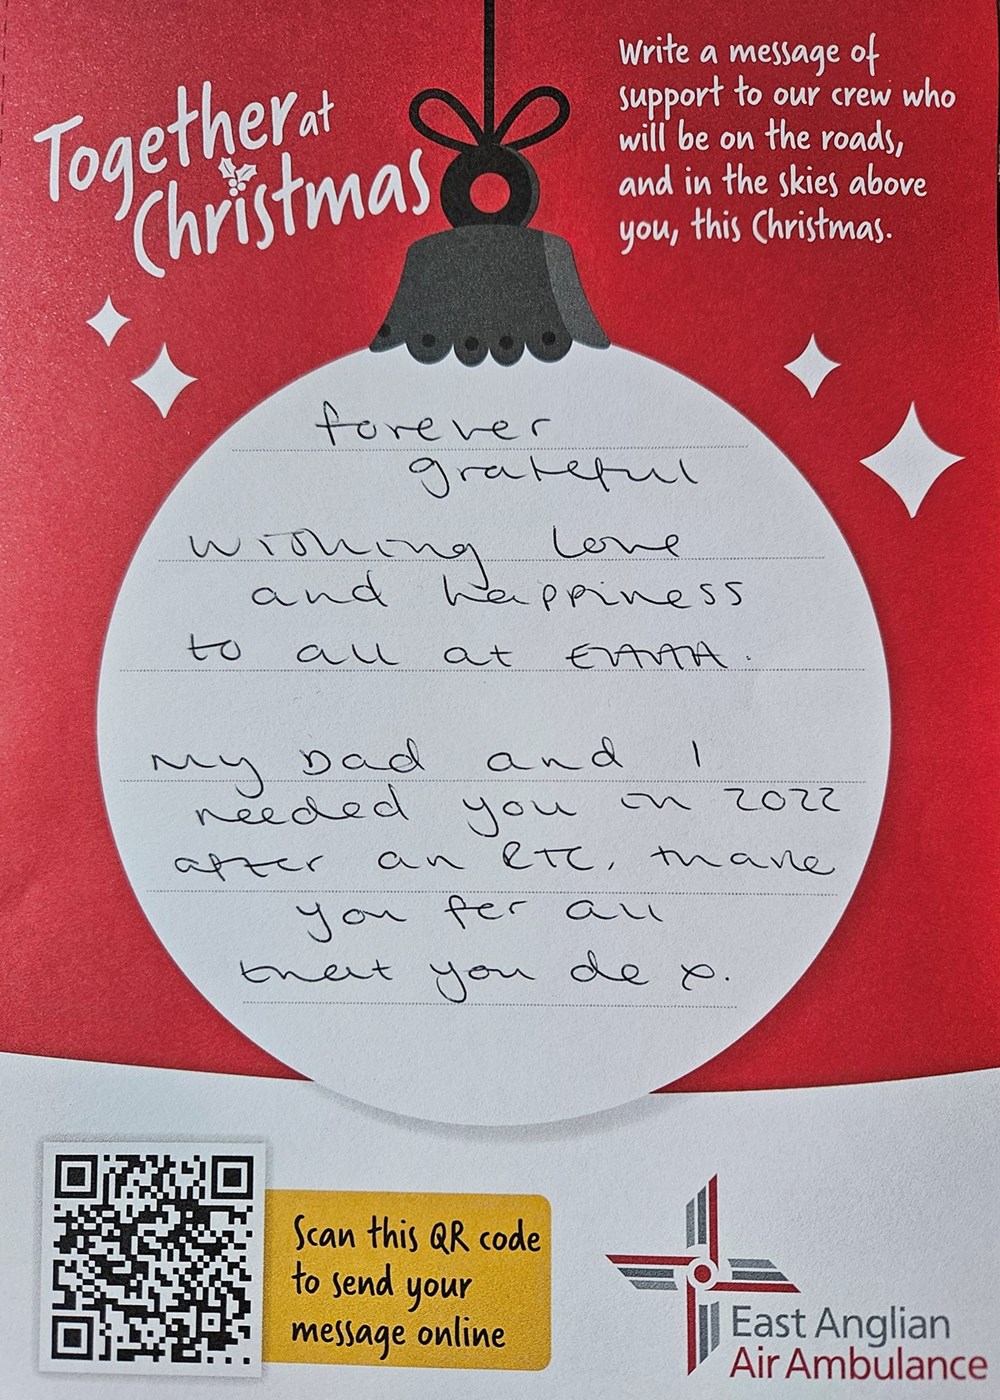 Together at
Christmas
Write a message of
support to our crew who
will be on the roads,
and in the skies above
you, this Christmas.
forever
grateful
wishing love
and happiness
to all at EAAA.
My Dad and I
needed you in 2022
after an RTC. thank
you for all
that you do x.
Scan this QR code
to send your
message online
East Anglian
Air Ambulance